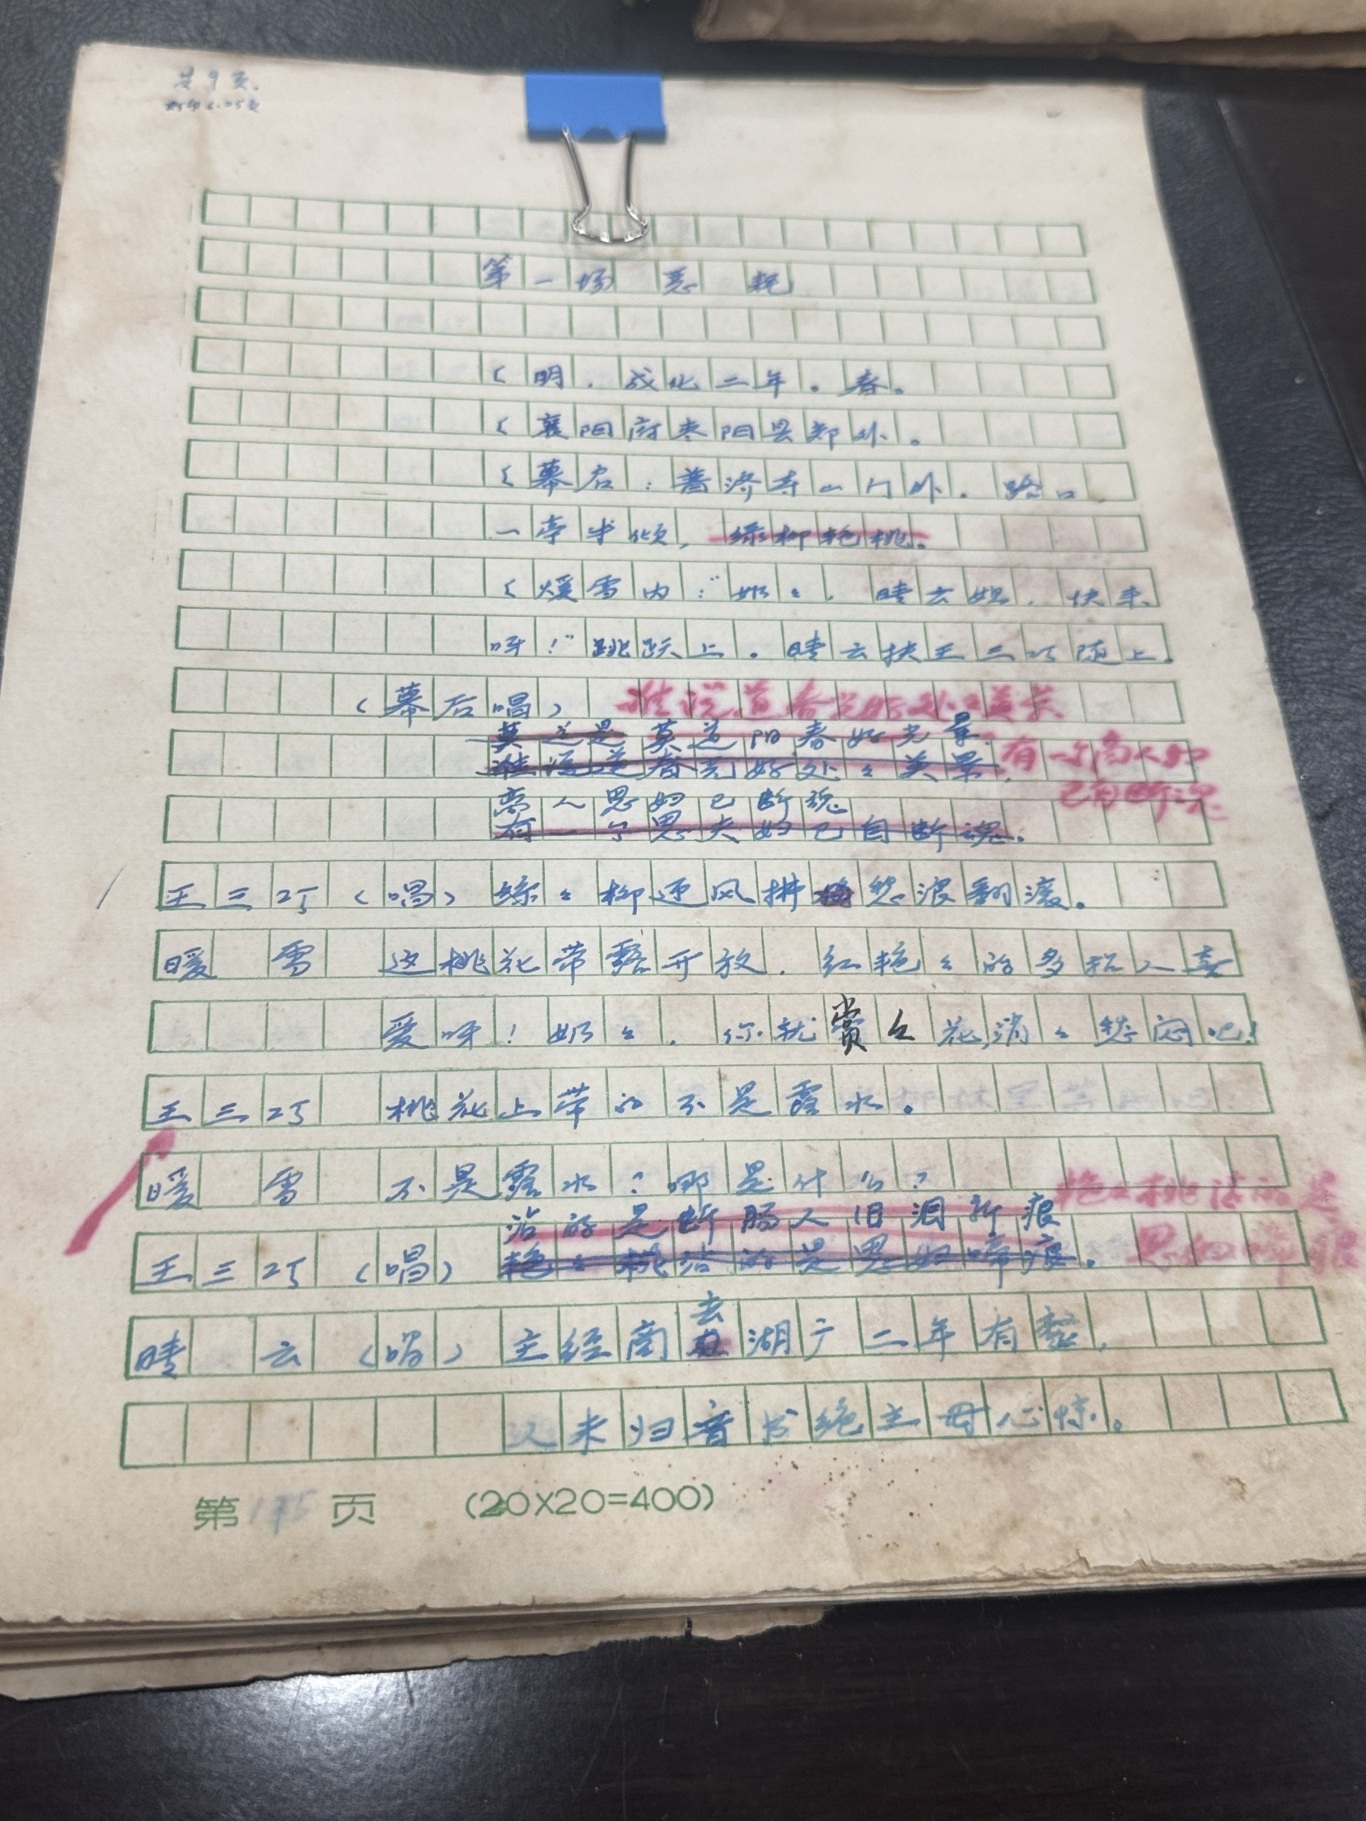 共9页
第一场 恶 耗
（明．成化二年。春。
（襄阳府枣阳县郊外。
（幕启：普济寺山门外。路口
一亭半倾，绿柳艳桃。
（煖雪内：“奶々，晴云姐，快来
呀！”跳跃上。晴云扶王三巧随上。
（幕后唱）谁说道春光好处处美景
莫道是 莫道阳春好光景
谁说道春光好处々美景，有一个离人妇
离人思妇已断魂 已自断魂
有一个思夫妇已自断魂。
王三巧（唱）绿々柳迎风摆 愁浪翻滚。
暖 雪 这桃花带露开放，红艳々的多招人喜
爱呀！奶々，你就赏々花消々愁闷吧！
王三巧 桃花上带的不是露水。
暖 雪 不是露水？哪是什么？
沾的是断肠人旧泪新痕 艳々桃沾的是
王三巧（唱）艳々桃沾的是思妇啼痕。思妇啼痕
晴 云（唱）主经商去湖广二年有整，
人未归音书绝主母心惊。
第 175 页 (20X20=400)